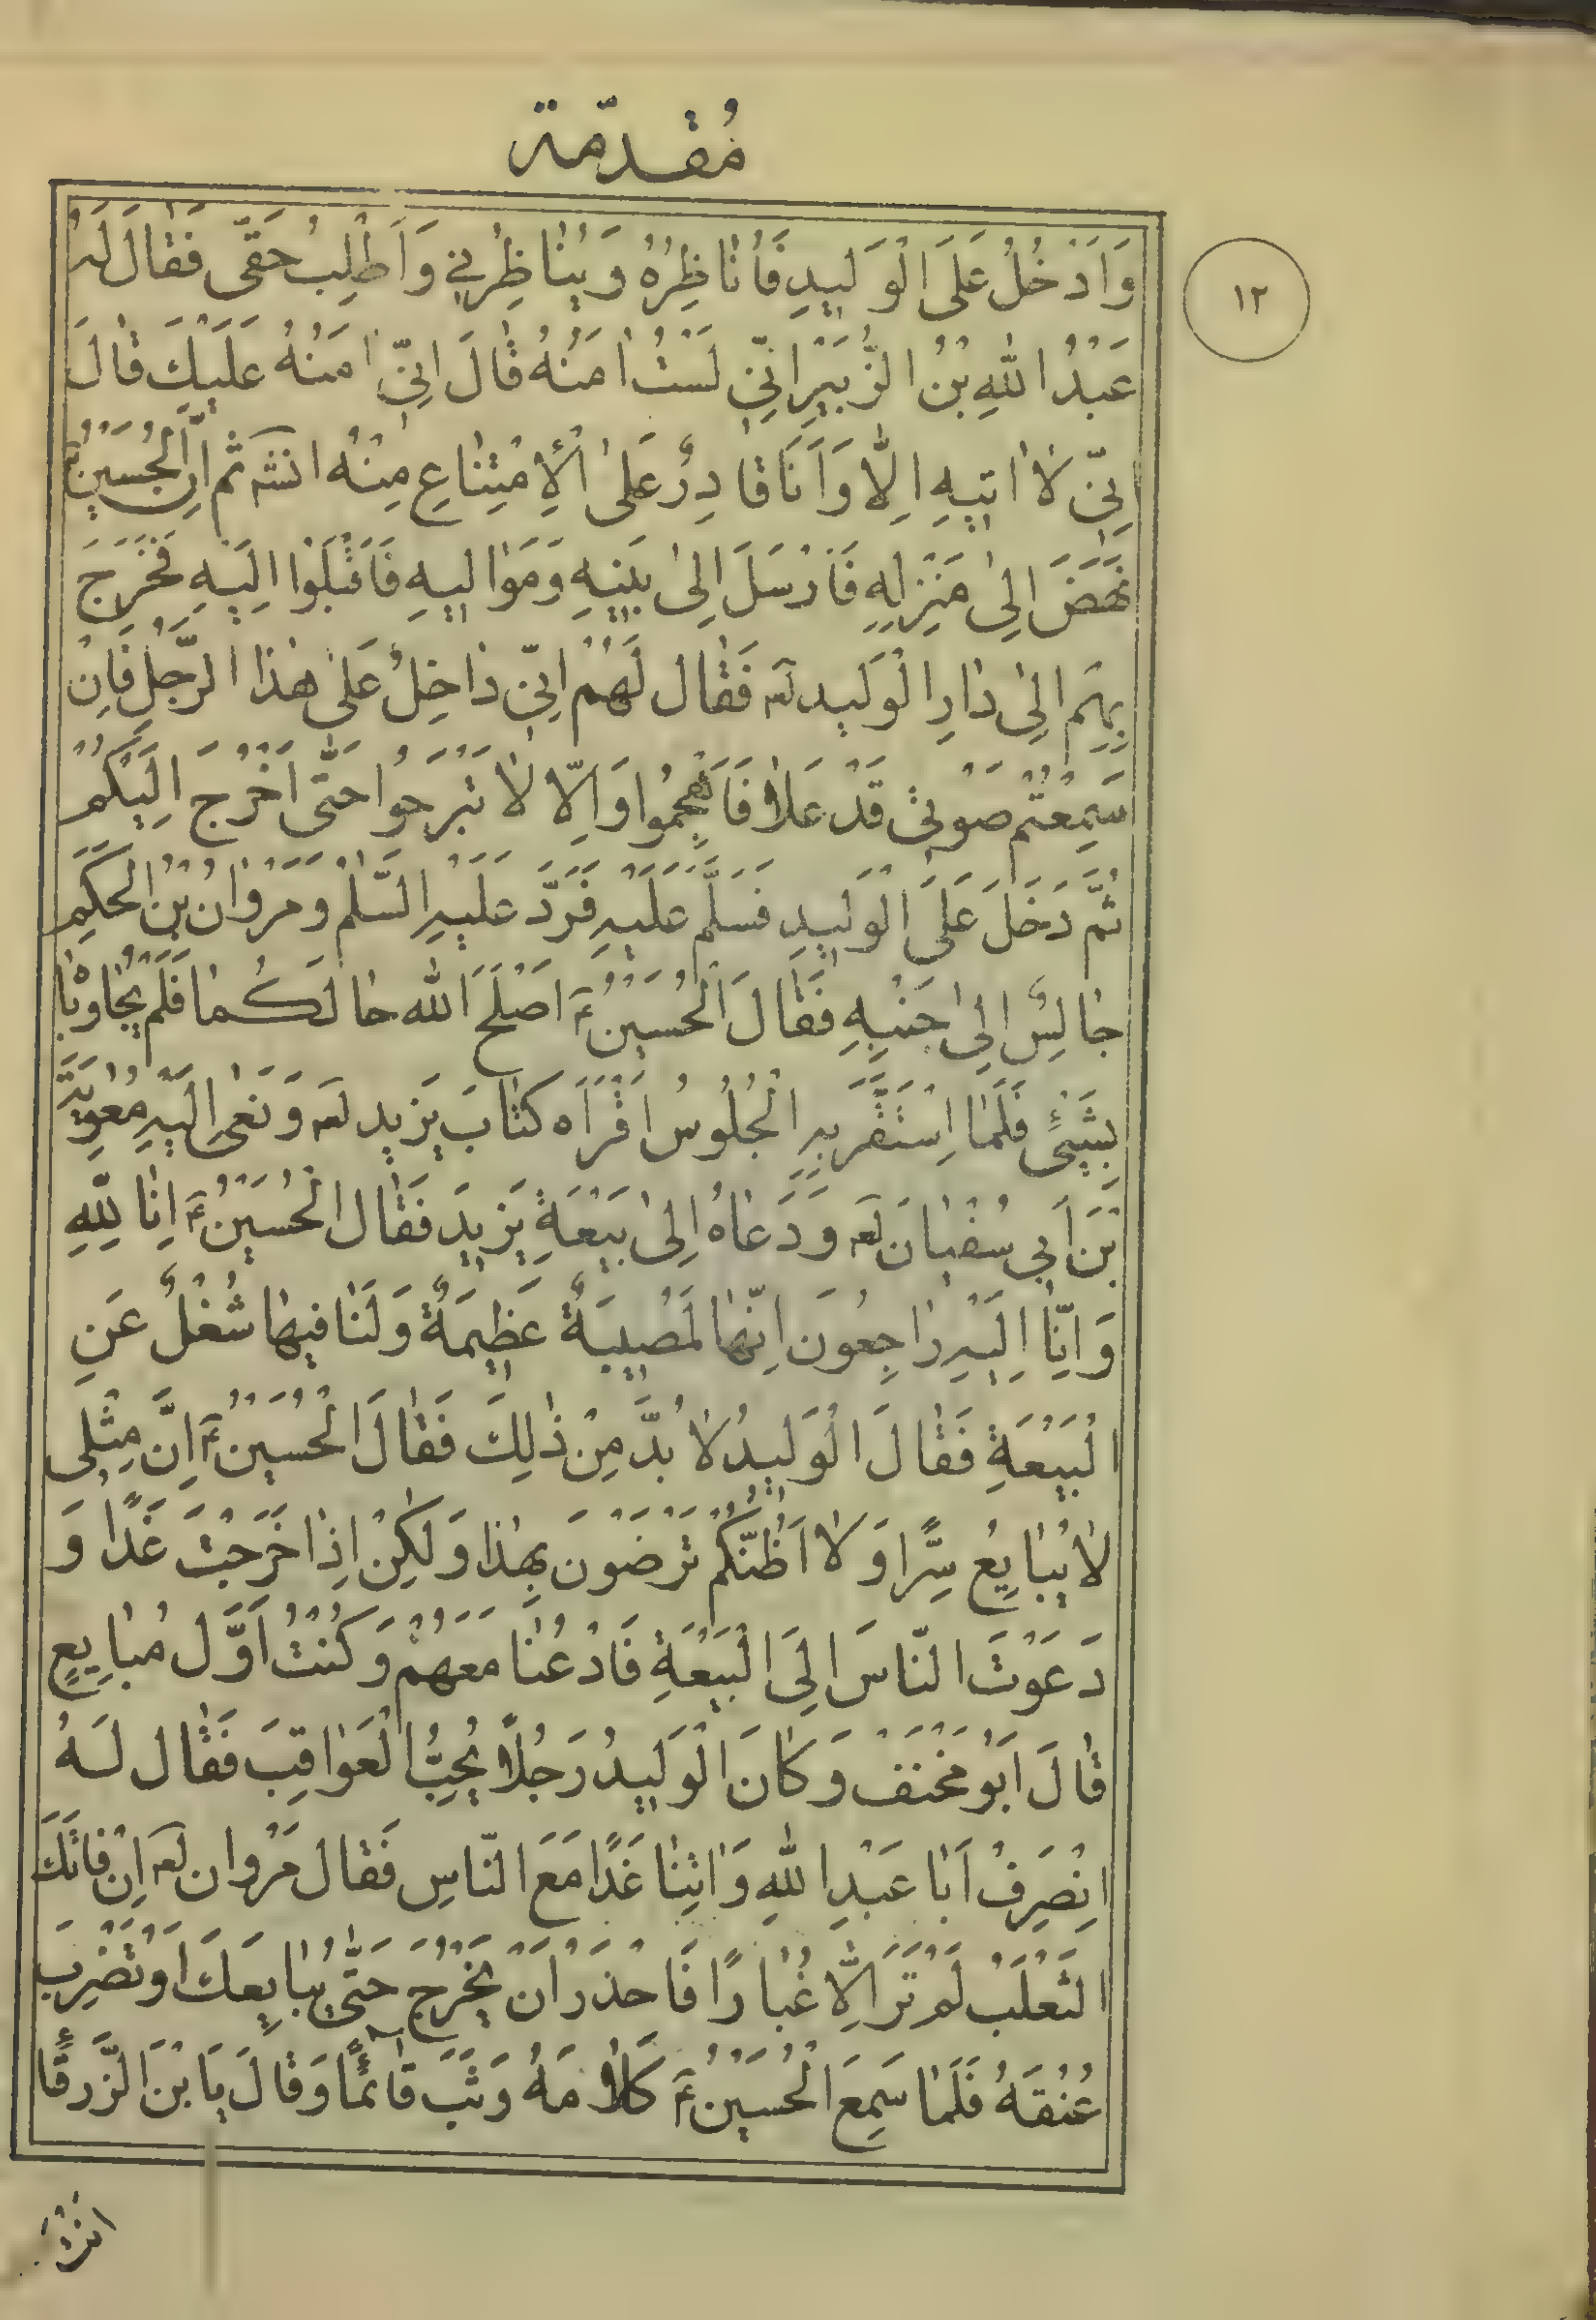 مُقدّمة
١٢
وَاَدْخُلُ عَلَى الْوَليدِ فَاُنٰاظِرُهُ وَيُنٰاظِرُنِي وَاَطْلِبُ حَقّى فَقٰالَ لَهُ
عَبْدُ اللّٰهِ بْنُ الزُّبَيْرِ اِنّى لَسْتُ اٰمَنُهُ قٰالَ اِنّى اٰمَنُهُ عَلَيْكَ قٰالَ
اِنّى لاٰ اٰتيهِ اِلّا وَاَنَا قٰادِرٌ عَلَى الْاِمْتِنٰاعِ مِنْهُ انشه ثم اِنَّ الْحُسَيْنُ
نَهَضَ اِلىٰ مَنْزِلِهِ فَاَرْسَلَ اِلىٰ بَنيهِ وَمَوٰاليهِ فَاَقْبَلَوُا اِلَيْهِ فَخَرَجَ
بِهِمْ اِلىٰ دٰارِ الْوَليد لَه فَقٰال لَهُمْ اِنّى دٰاخِلٌ عَلىٰ هٰذَا الرَّجُلِ فَاِنْ
سَمِعْتُم صَوْتى قَدْ عَلاٰ فَاَهْجِمُوا وَاِلّا لاٰ تَبْرَحوُا حَتّٰى اَخْرُجَ اِلَيْكُمْ
ثُمَّ دَخَلَ عَلَى الْوَليدِ فَسَلَّمَ عَلَيْهِ فَرَدَّ عَلَيْهِ السَّلٰمْ وَمَرْوٰانُ بْنُ الْحَكَمِ
جٰالِسٌ اِلىٰ جَنْبِهِ فَقٰالَ الْحُسَيْنُ ؑ اَصْلَحَ اللّٰه حٰالَكُمٰا فَلَمْ يُجٰاوِبٰا
بِشَيْئٍ فَلَمّا اِسْتَقَرَّ بِهِ الْجُلُوسُ اَقْرَاَه كتٰابَ يَزيد لعه وَنَعىٰ اِلَيْهِ مُعٰوِيَةَ
بْنَ اَبي سُفْيٰانَ لعه وَدَعٰاهُ اِلىٰ بَيْعَةِ يَزيدَ فَقٰال الْحُسَيْنُ ؑ اِنّا لِلّٰهِ
وَاِنّا اِلَيْهِ رٰاجِعُونَ اِنَّهٰا لَمُصيبَةٌ عَظيمَةٌ وَلَنٰا فيهٰا شُغْلٌ عَنِ
الْبَيْعَةِ فَقٰالَ الْوَليدُ لاٰ بُدَّ مِنْ ذٰلِكَ فَقٰالَ الْحُسَيْنُ ؑ اِنَّ مِثْلى
لاٰ يُبٰايِعُ سِرًّا وَلاٰ اَظُنُّكُمْ تَرْضَوْنَ بِهٰذٰا وَلٰكِنْ اِذٰا خَرَجْتَ غَدًا وَ
دَعَوْتَ النّاسَ اِلَى الْبَيْعَةِ فَادْعُنٰا مَعَهُمْ وَكُنْتُ اَوَّل مُبٰايِعٍ
قٰالَ اَبوُ مَخْنَفْ وَكٰانَ الْوَليدُ رَجُلاً يُحِبُّ الْعَوٰاقِبَ فَقٰال لَهُ
انْصَرِفْ اَبٰا عَبْدِ اللّٰهِ وَاْتِنٰا غَدًا مَعَ النّاسِ فَقٰال مَرْوان لعه اِنْ فٰاتَكَ
الثَعْلَبْ لَمْ تَرَ اِلّا غُبٰارًا فَاحْذَرْ اَنْ يَخْرُجَ حَتّٰى يُبٰايِعَكَ اَوْ تَضْرِبَ
عُنُقَهُ فَلَمّا سَمِعَ الْحُسَيْنُ ؑ كَلاٰمَهُ وَثَبَ قٰائِمًا وَقٰالَ يَا بْنَ الزَّرقٰا